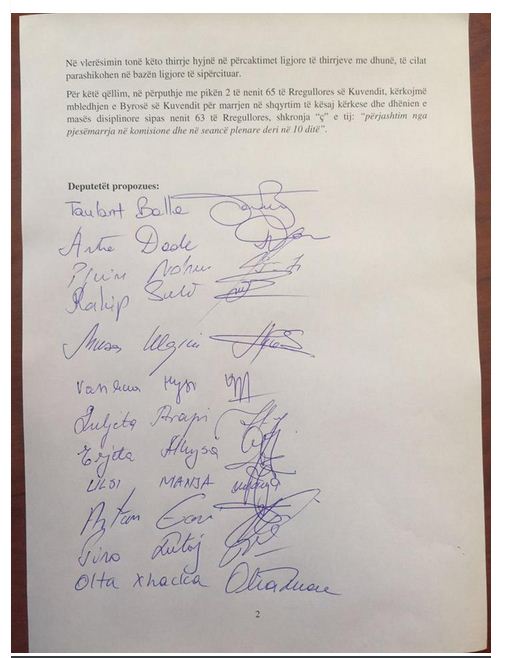 Në vlerësimin tonë këto thirrje hyjnë në përcaktimet ligjore të thirrjeve me dhunë, të cilat
parashikohen në bazën ligjore të sipërcituar.
Për këtë qëllim, në përputhje me pikën 2 të nenit 65 të Rregullores së Kuvendit, kërkojmë
mbledhjen e Byrosë së Kuvendit për marrjen në shqyrtim të kësaj kërkese dhe dhënien e
masës disiplinore sipas nenit 63 të Rregullores, shkronja “ç” e tij: “përjashtim nga
pjesëmarrja në komisione dhe në seancë plenare deri në 10 ditë”.
Deputetët propozues:
Taulant Balla
Dade
Rakip Suli
Musa Ulqini
Vasilika Hysi
Luljeta Arapi
Ulsi MANJA
Olta Xhacka
2